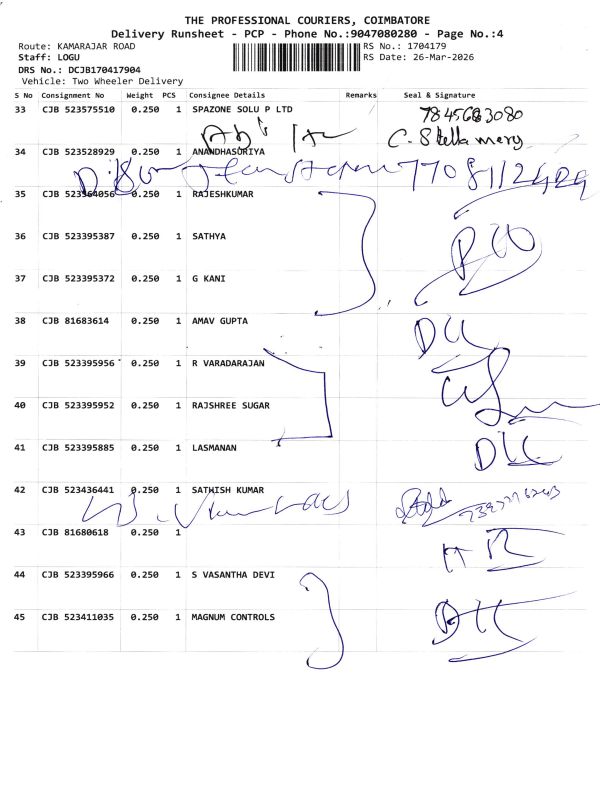 THE PROFESSIONAL COURIERS, COIMBATORE
Delivery Runsheet - PCP - Phone No.:9047080280 - Page No.:4
Route: KAMARAJAR ROAD RS No.: 1704179
Staff: LOGU RS Date: 26-Mar-2026
DRS No.: DCJB170417904
Vehicle: Two Wheeler Delivery
S No Consignment No Weight PCS Consignee Details Remarks Seal & Signature
33 CJB 523575510 0.250 1 SPAZONE SOLU P LTD
C. Stella mery
34 CJB 523528929 0.250 1 ANANDHASURIYA
35 CJB 523364056 0.250 1 RAJESHKUMAR
36 CJB 523395387 0.250 1 SATHYA
37 CJB 523395372 0.250 1 G KANI
38 CJB 81683614 0.250 1 AMAV GUPTA
39 CJB 523395956 0.250 1 R VARADARAJAN
40 CJB 523395952 0.250 1 RAJSHREE SUGAR
41 CJB 523395885 0.250 1 LASMANAN
42 CJB 523436441 0.250 1 SATHISH KUMAR
43 CJB 81680618 0.250 1
44 CJB 523395966 0.250 1 S VASANTHA DEVI
45 CJB 523411035 0.250 1 MAGNUM CONTROLS